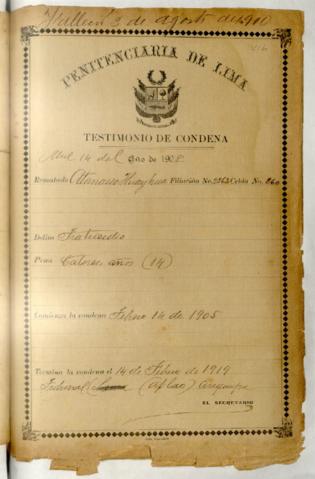 de agosto de 1910
PENITENCIARIA DE LIMA
TESTIMONIO DE CONDENA
Abril 14 del año de 1908
Rematado Atanacio Huayhua Filiación No. 2263 Celda No. 260
Delito Fratricidio
Pena Catorce años (14)
Comienza la condena Febrero 14 de 1905
Termina la condena el 14 de Febrero de 1919
Tribunal (Aplao) Arequipa
EL SECRETARIO